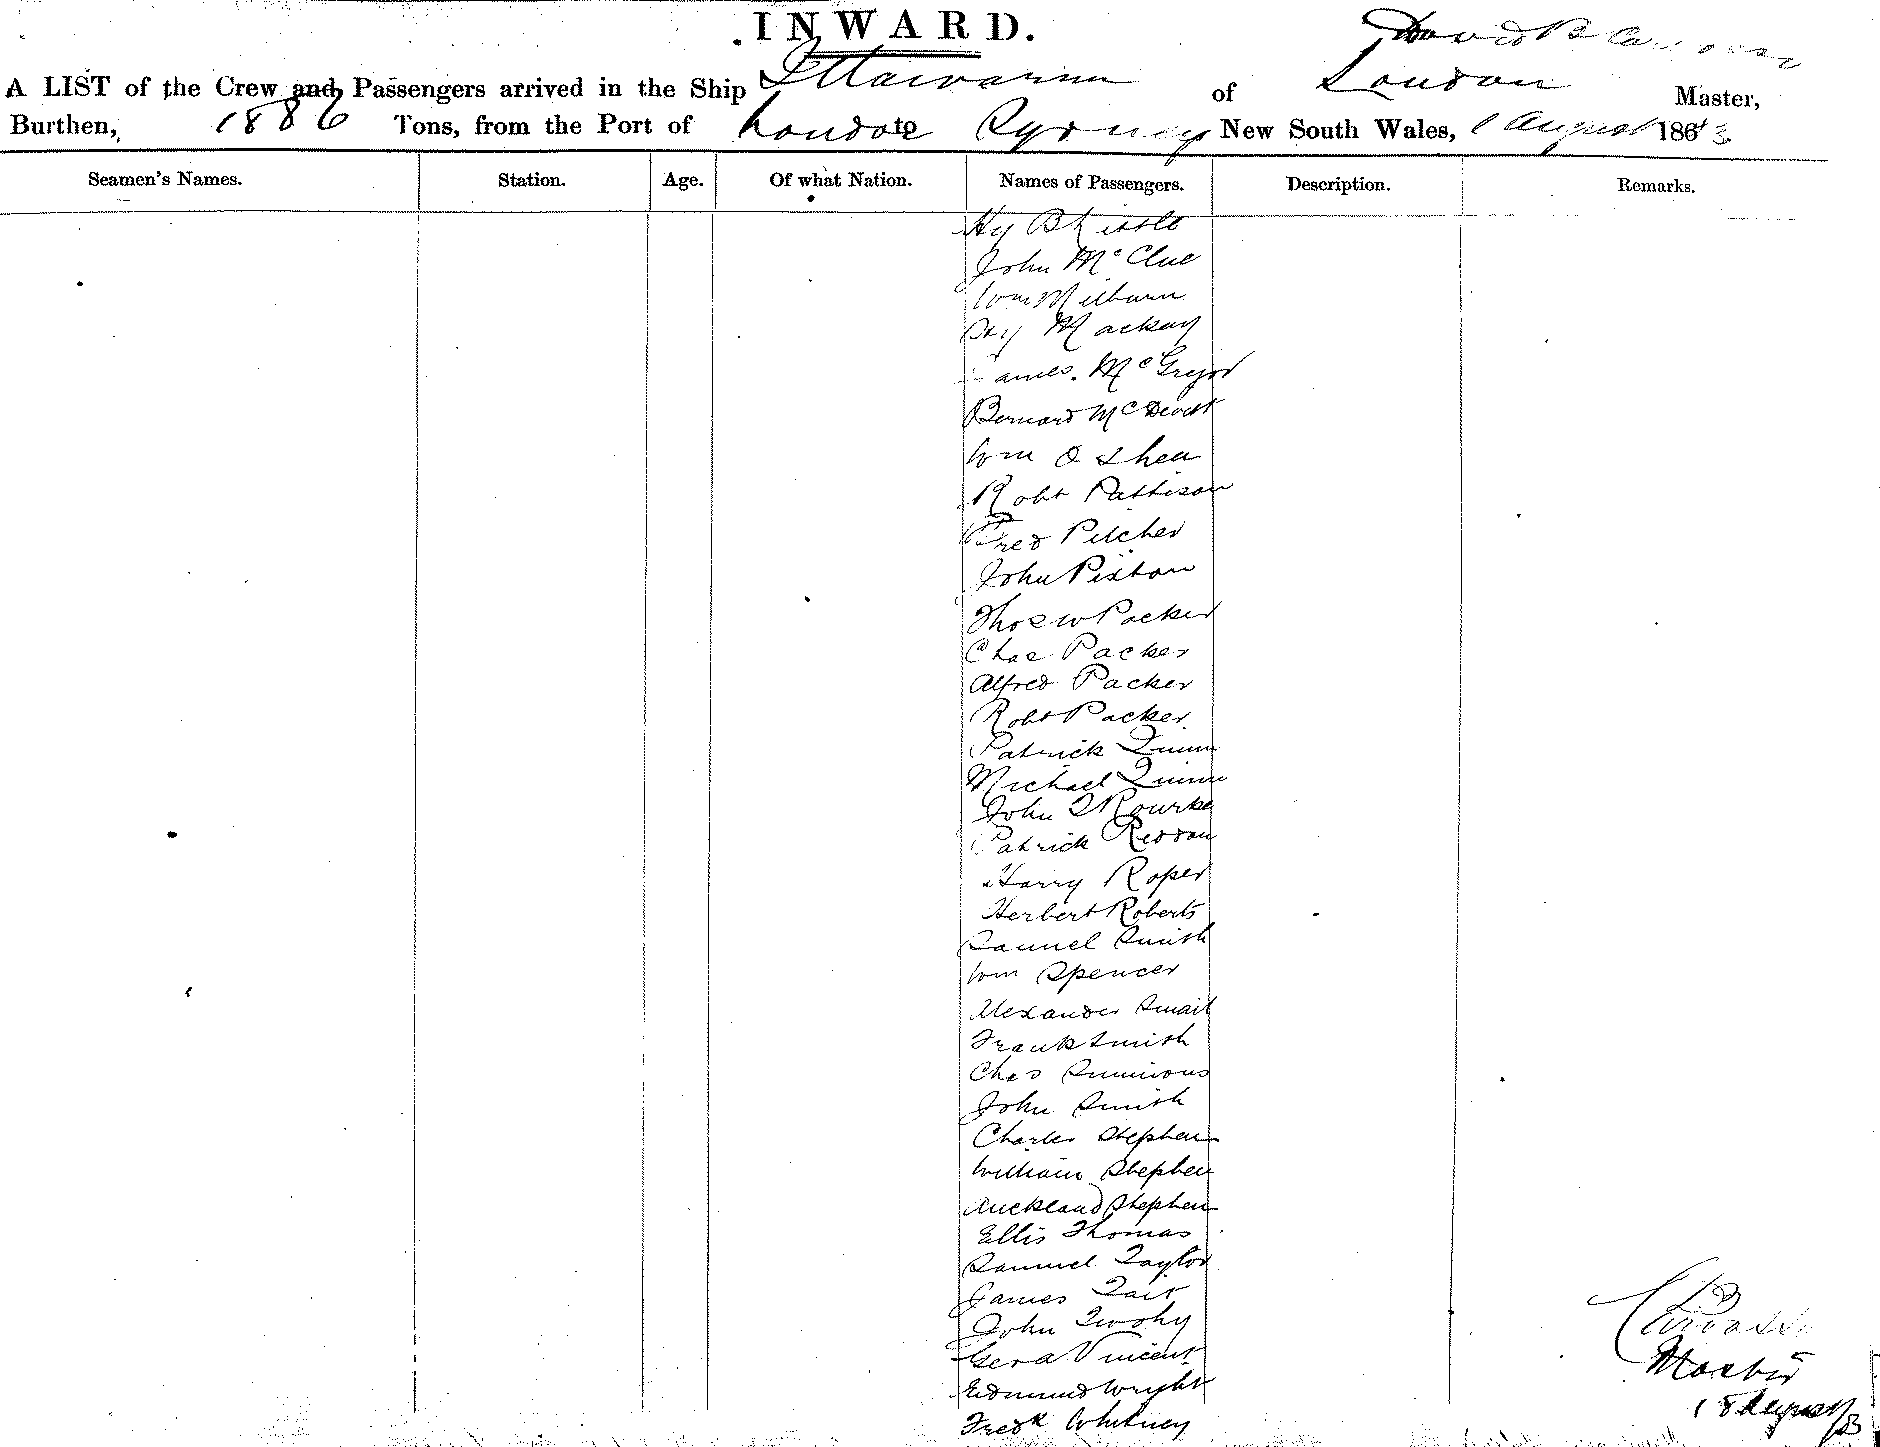 INWARD.
David B
A LIST of the Crew and Passengers arrived in the Ship Illawarra of London Master,
Burthen, 1886 Tons, from the Port of London to Sydney New South Wales, 1 August 1883
Seamen's Names. Station. Age. Of what Nation. Names of Passengers. Description. Remarks.
Hy
John McClue
Wm Milburn
Mackay
James. McGregor
Bernard McDevitt
Wm O Shea
Robt Pattison
Fred Pilcher
John Pixton
Thos W Packer
Chas Packer
Alfred Packer
Robt Packer
Patrick Quinn
Michael Quinn
John O Rourke
Patrick Reddan
Harry Roper
Herbert Roberts
Samuel Smith
Wm Spencer
Alexander Smail
Frank Smith
Chas Simmons
John Smith
Charles Stephen
William Stephen
Auckland Stephen
Ellis Thomas
Samuel Taylor
James Tait
John Twohy
Gerd Vincent
Edmund Wright
Fredk Whitney
Master
1 August 83